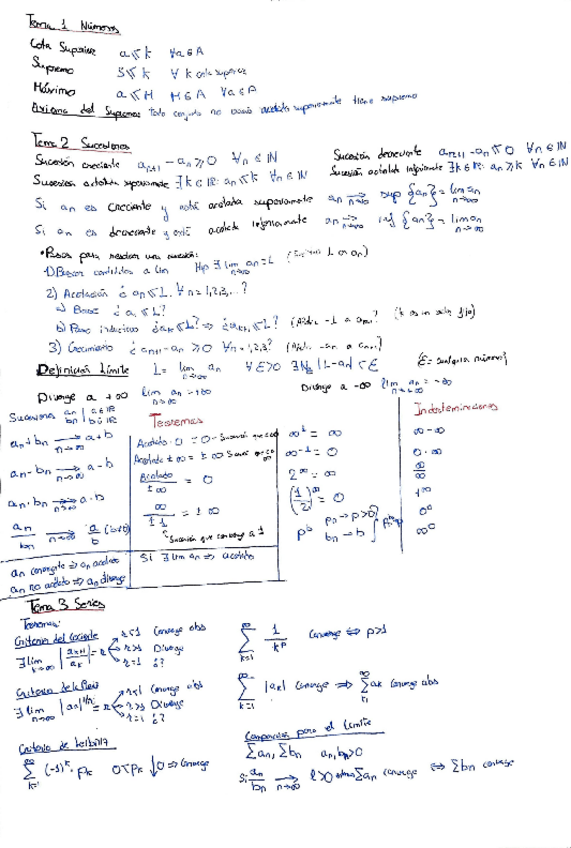 Tema 1 Números
Cota Superior a ≤ k ∀a ∈ A
Supremo S ≤ k ∀ k cota superior
Máximo a ≤ M M ∈ A ∀a ∈ A
Axioma del Supremo: Todo conjunto no vacío acotado superiormente tiene supremo
Tema 2 Sucesiones
Sucesión creciente aₙ₊₁ - aₙ ≥ 0 ∀n ∈ ℕ Sucesión decreciente aₙ₊₁ - aₙ ≤ 0 ∀n ∈ ℕ
Sucesión acotada superiormente ∃k ∈ ℝ: aₙ ≤ k ∀n ∈ ℕ Sucesión acotada inferiormente ∃k ∈ ℝ: aₙ ≥ k ∀n ∈ ℕ
Si aₙ es creciente y está acotada superiormente aₙ →(n→∞) sup{aₙ} = lim aₙ n→∞
Si aₙ es decreciente y está acotada inferiormente aₙ →(n→∞) inf{aₙ} = lim aₙ n→∞
• Pasos para resolver una sucesión:
1) Buscar candidatos a lim Hip ∃ lim aₙ = L n→∞
2) Acotación ¿aₙ ≤ L, ∀n = 1,2,3,...?
a) Base ¿a₁ ≤ L?
b) Paso inductivo ¿aₖ ≤ L? ⇒ ¿aₖ₊₁ ≤ L?
3) Crecimiento ¿aₙ₊₁ - aₙ ≥ 0 ∀n = 1,2,3?
Definición Límite L = lim aₙ n→∞ ∀ε > 0 ∃N |L - aₙ| < ε (ε = cualquier número)
Diverge a +∞ lim aₙ = +∞ n→∞ Diverge a -∞ lim aₙ = -∞ n→∞
Sucesiones aₙ | a ∈ ℝ bₙ | b ∈ ℝ
aₙ + bₙ →(n→∞) a + b
aₙ - bₙ →(n→∞) a - b
aₙ · bₙ →(n→∞) a · b
aₙ/bₙ →(n→∞) a/b (b≠0)
aₙ convergente ⇒ aₙ acotada
aₙ no acotada ⇒ aₙ diverge
Teoremas
Acotado · 0 = 0
Acotado ± ∞ = ± ∞
Acotado/±∞ = 0
∞/±1 = ± ∞
Sucesión que converge a 1
Si ∃ lim aₙ ⇒ acotada
∞¹ = ∞
∞⁻¹ = 0
2^∞ = ∞
(1/2)^∞ = 0
p^b pₙ → p > 0 bₙ → b
Indeterminaciones
∞ - ∞
0 · ∞
∞/∞
1^∞
0⁰
∞⁰
Tema 3 Series
Teoremas:
Criterio del Cociente
∃ lim n→∞ |aₖ₊₁/aₖ| = r r<1 Converge abs
r>1 Diverge
r=1 ¿?
∑ k=1 ∞ 1/kᵖ Converge ⇔ p>1
Criterio de la Raíz
∃ lim n→∞ |aₙ|^(1/n) = r r<1 Converge abs
r>1 Diverge
r=1 ¿?
∑ k=1 ∞ |aₖ| Converge ⇒ ∑ ∞ aₖ Converge abs
Criterio de Leibniz
∑ k=1 ∞ (-1)ᵏ · pₖ 0 < pₖ ↓ 0 ⇒ Converge
Comparación paso al límite
∑aₙ, ∑bₙ aₙ, bₙ > 0
Si aₙ/bₙ →(n→∞) l > 0 ∑aₙ converge ⇔ ∑bₙ converge